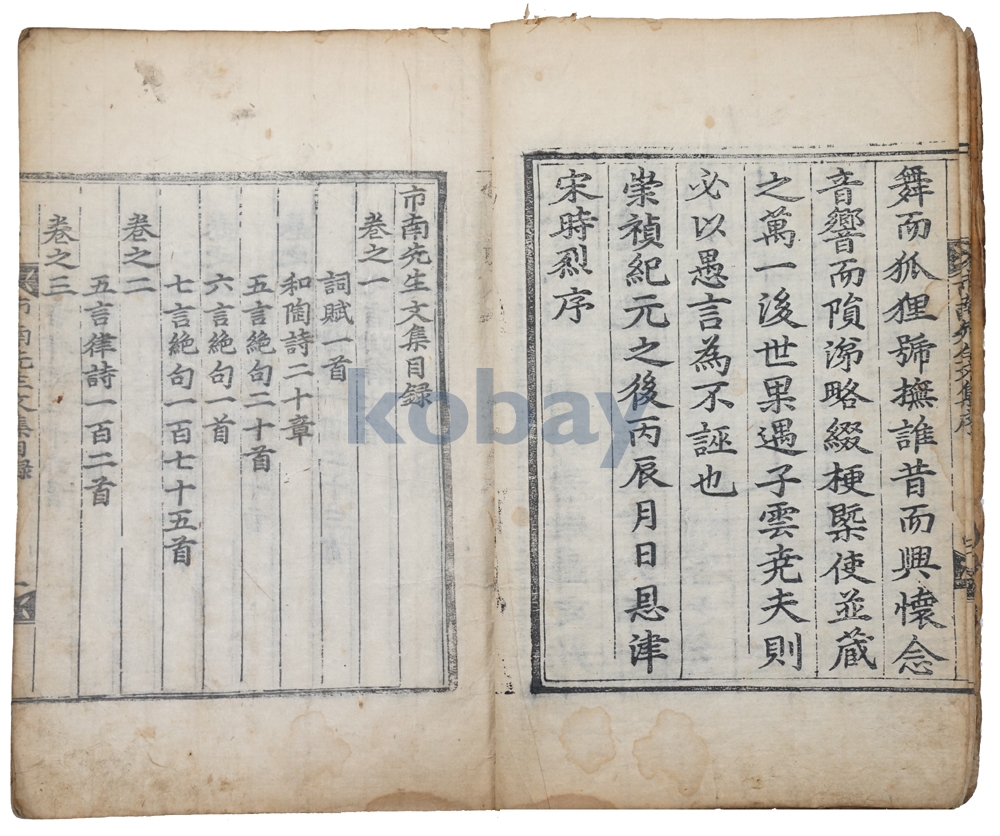 舞而狐狸號撫誰昔而興懷念
音響而隕涕略綴梗槩使並蔵
之萬一後世果遇子雲尭夫則
必以愚言為不誣也
崇禎紀元之後丙辰月日恩津
宋時烈序
市南先生文集目録
卷之一
詞賦一首
和陶詩二十章
五言絶句二十首
六言絶句一首
七言絶句一百七十五首
卷之二
五言律詩一百二首
卷之三
市南先生文集目録
kobay